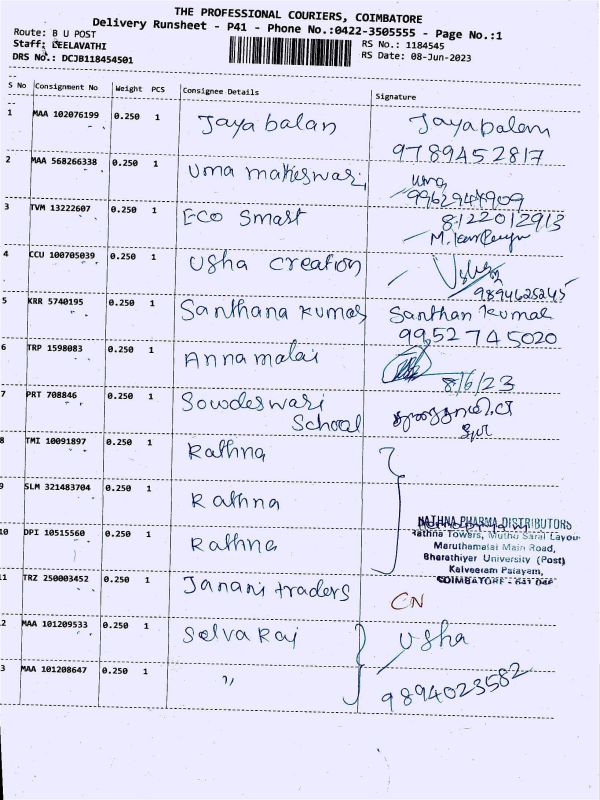 THE PROFESSIONAL COURIERS, COIMBATORE
Delivery Runsheet - P41 - Phone No.:0422-3505555 - Page No.:1
Route: B U POST
RS No.: 1184545
Staff: LEELAVATHI
RS Date: 08-Jun-2023
DRS No.: DCJB118454501
S No Consignment No Weight PCS Consignee Details Signature
1 MAA 102076199 0.250 1 Jaya balan Jayabalan
9789452817
2 MAA 568266338 0.250 1 Uma maheswari Uma
9962944909
3 TVM 13222607 0.250 1 Eco Smart 8122012913
4 CCU 100705039 0.250 1 Usha creation Usha
9894625245
5 KRR 5740195 0.250 1 Santhana Kumar Santhan Kumar
9952745020
6 TRP 1598083 0.250 1 Annamalai
8/6/23
7 PRT 708846 0.250 1 Sowdeswari
School
8 TMI 10091897 0.250 1 Rathna
9 SLM 321483704 0.250 1 Rathna
10 DPI 10515560 0.250 1 Rathna
RATHNA PHARMA DISTRIBUTORS
Rathna Towers, Muthu Saral Layou
Maruthamalai Main Road,
Bharathiyar University (Post)
Kalveeram Palayam,
COIMBATORE - 641 046
11 TRZ 250003452 0.250 1 Janani traders CN
2 MAA 101209533 0.250 1 Selva Raj Usha
3 MAA 101208647 0.250 1 " 9894023582